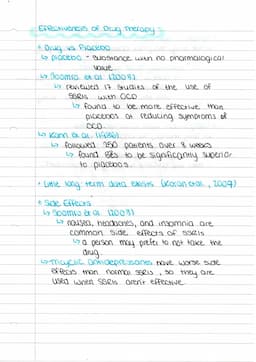 Effectiveness of Drug Therapy
• Drug vs Placebo
↳ placebo - substance with no pharmalogical
value.
↳ Soomro et al. (2008)
↳ reviewed 17 studies of the use of
SSRIs with OCD
↳ found to be more effective than
placebos at reducing symptoms of
OCD.
↳ Kahn et al. (1986)
↳ followed 250 patients over 8 weeks
↳ found BZs to be significantly superior
to placebos.
• Little long term data exists (Koran et al., 2007)
• Side Effects
↳ Soomro et al. (2008)
↳ nausea, headaches, and insomnia are
common side effects of SSRIs
↳ a person may prefer to not take the
drug.
↳ Tricyclic Antidepressants have worse side
effects than normal SSRIs, so they are
used when SSRIs aren't effective.